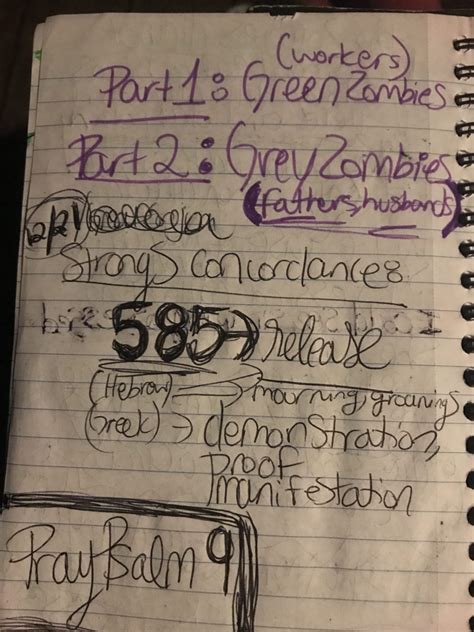 (workers)
Part 1: Green Zombies
Part 2: Grey Zombies
(fathers, husbands)
Strongs concordance:
585 → release
(Hebrow) → mourning, groanings
(Greek) → demonstration,
proof
manifestation
Pray Psalm 9